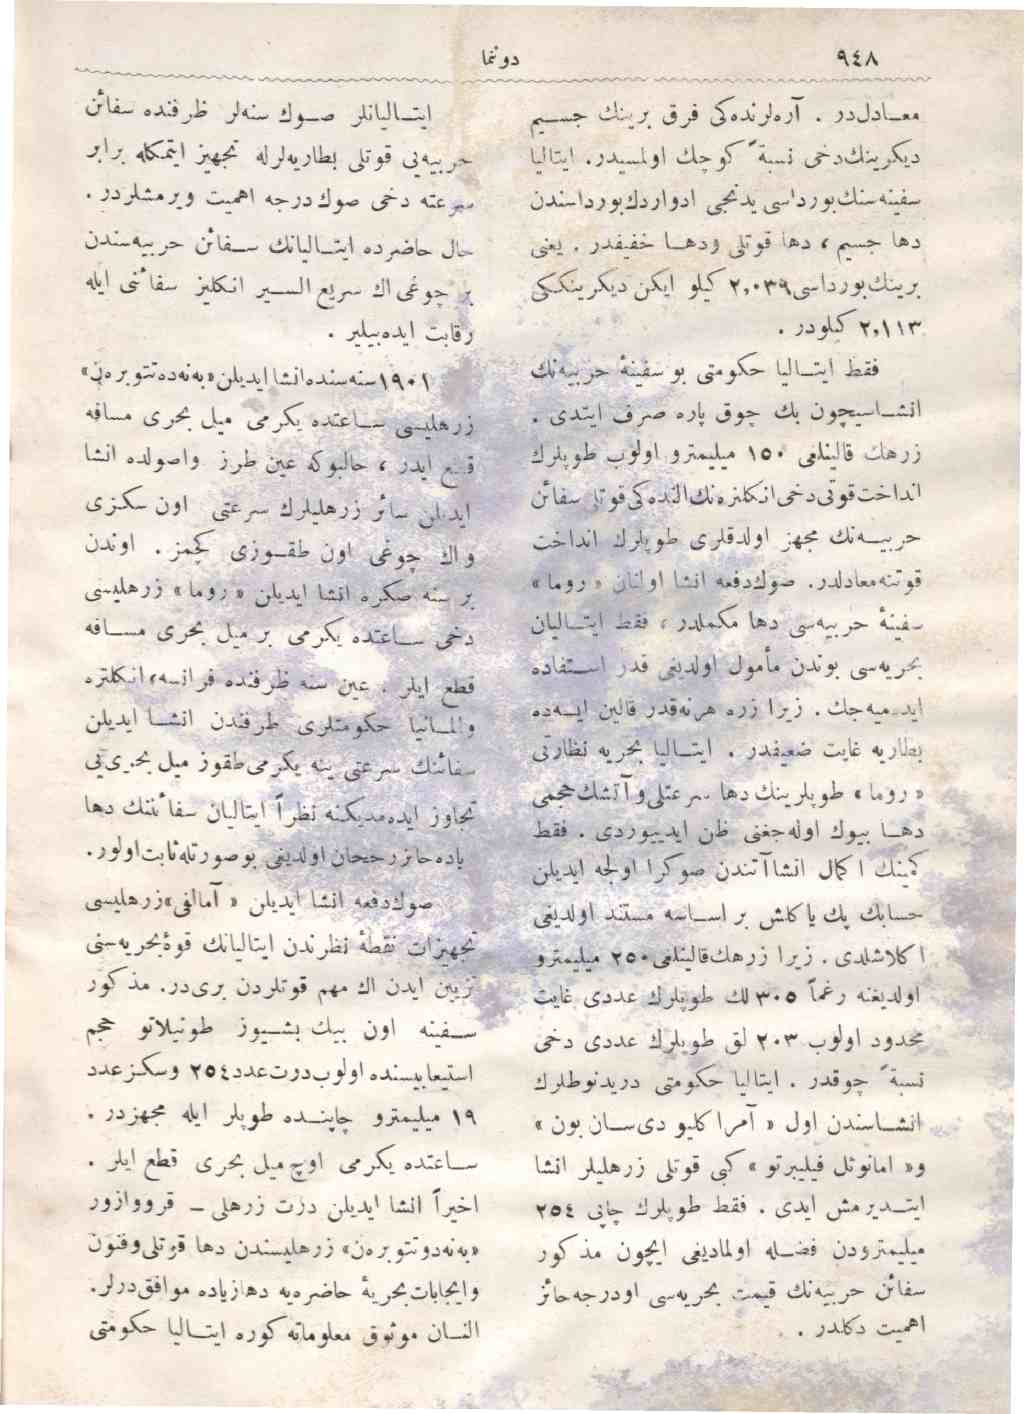 ٩٤٨
دونما
معـادل‌در . آره‌لرنده‌كی فرق برینك جسـیم
دیكرینك‌دخی نسبةً كوچك اولمسیدر. ایتالیا
سفینه‌سنك‌بورداسی یدنجی ادواردك‌بورداسندن
دها جسیم ، دها قوتلی ودهـا خفیفدر . یعنی
برینك‌بورداسی٢,٠٣٩ كیلو ایكن دیكرینككی
٢,١١٣ كیلودر .
فقط ایتـالیا حكومتی بو سفینۀ حربیه‌نك
انشـاسیچون بك چوق پاره صرف ایتدی .
زرهك قالینلغی ١٥٠ میلیمترو اولوب طوپلرك
انداخت‌قوتی‌دخی‌انكلتره‌نك‌النده‌كی‌قوتلی سفائن
حربیـه‌نك مجهز اولدقلری طوپلرك انداخت
قوتنه‌معادلدر. صوك‌دفعه انشا اولنان « روما »
سفینۀ حربیه‌سی دها مكملدر ، فقط ایتـالیان
بحریه‌سی بوندن مأمول اولدیغی قدر اسـتفاده
ایده‌میه‌جك . زیرا زره هرنه‌قدر قالین ایسه‌ده
بطاریه غایت ضعیفدر . ایتـالیا بحریه نظارتی
« روما » طوپلرینك دها سرعتلی‌وآتشك‌حجمی
دهـا بیوك اوله‌جغنی ظن ایدییوردی . فقط
كمینك اكمال انشاآتندن صوكرا اولجه ایدیلن
حسابك پك یاكلش بر اسـاسه مستند اولدیغی
اكلاشلدی . زیرا زرهك‌قالینلغی٢٥٠ میلیمترو
اولدیغنه رغماً ٣٠٥ لك طوپلرك عددی غایت
محدود اولوب ٢٠٣ لق طوپلرك عددی دخی
نسبةً چوقدر . ایتالیا حكومتی دریدنوطلرك
انشـاسندن اول « آمراكلیو دی‌سـان بون »
و« امانوئل فیلیبرتو » كبی قوتلی زرهلیلر انشا
ایتـدیرمش ایدی . فقط طوپلرك چاپی ٢٥٤
میلیمترودن فضـله اولمادیغی ایچون مذكور
سفائن حربیه‌نك قیمت بحریه‌سی اودرجه‌حائز
اهمیت دكلدر .
ایتـالیانلر صـوك سنه‌لر ظرفنده سفائن
حربیه‌یی قوتلی بطاریه‌لرله تجهیز ایتمكله برابر
سرعته دخی صوك‌درجه اهمیت ویرمشلردر .
حال حاضرده ایتـالیانك سـفائن حربیه‌سندن
بر چوغی اك سریع السـیر انكلیز سفائنی ایله
رقابت ایده‌بیلیر .
١٩٠١سنه‌سنده‌انشا ایدیلن«به‌نه‌ده‌تتوبره‌ن»
زرهلیسی سـاعتده یكرمی میل بحری مسافه
قطع ایدر ، حالبوكه عین طرز واصولده انشا
ایدیلن سائر زرهلیلرك سرعتی اون سكـزی
واك چوغی اون طقـوزی كچمز . اوندن
بر سنه صكره انشا ایدیلن « روما » زرهلیسی
دخی سـاعتده یكرمی بر میل بحری مسـافه
قطع ایلر . عین سنه ظرفنده فرانسه،انكلتره
والمـانیا حكومتلری طرفندن انشـا ایدیلن
سفائنك سرعتی ینه یكرمی‌طقوز میل بحری‌یی
تجاوز ایده‌مدیكنه نظراً ایتالیان سفائننك دها
یاده‌حائزرجحان اولدیغی بوصورتله‌ثابت‌اولور.
صوك‌دفعه انشا ایدیلن « آمالفی»زرهلیسی
تجهیزات نقطۀ نظرندن ایتالیانك قوۀبحریه‌سنی
تزیین ایدن اك مهم قوتلردن بری‌در. مذكور
سـفینه اون بیك بشـیوز طونیلاتو حجم
استیعابیسنده اولوب‌درت‌عدد٢٥٤ وسكـزعدد
١٩ میلیمترو چاپنـده طوپلر ایله مجهزدر .
سـاعتده یكرمی اوچ میل بحری قطع ایلر .
اخیراً انشا ایدیلن درت زرهلی – قرووازور
«به‌نه‌دوتتوبره‌ن» زرهلیسندن دها قوتلی‌وفنون
وایجابات‌بحریۀ حاضره‌یه دهازیاده موافق‌درلر.
النـان موثوق معلوماته‌كوره ایتـالیا حكومتی